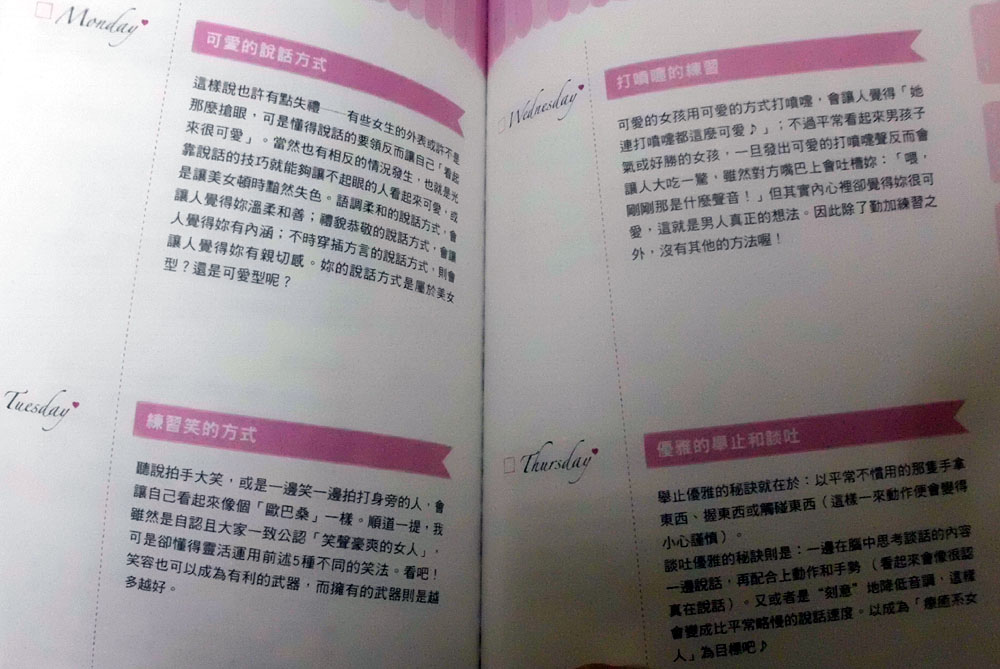 Monday
可愛的說話方式
這樣說也許有點失禮——有些女生的外表或許不是
那麼搶眼,可是懂得說話的要領反而讓自己「看起
來很可愛」。當然也有相反的情況發生,也就是光
靠說話的技巧就能夠讓不起眼的人看起來可愛,或
是讓美女頓時黯然失色。語調柔和的說話方式,會
讓人覺得妳溫柔和善;禮貌恭敬的說話方式,會讓
人覺得妳有內涵;不時穿插方言的說話方式,則會
讓人覺得妳有親切感。妳的說話方式是屬於美女
型?還是可愛型呢?
Tuesday
練習笑的方式
聽說拍手大笑,或是一邊笑一邊拍打身旁的人,會
讓自己看起來像個「歐巴桑」一樣。順道一提,我
雖然是自認且大家一致公認「笑聲豪爽的女人」,
可是卻懂得靈活運用前述5種不同的笑法。看吧!
笑容也可以成為有利的武器,而擁有的武器則是越
多越好。
Wednesday
打噴嚏的練習
可愛的女孩用可愛的方式打噴嚏,會讓人覺得「她
連打噴嚏都這麼可愛♪」;不過平常看起來男孩子
氣或好勝的女孩,一旦發出可愛的打噴嚏聲反而會
讓人大吃一驚,雖然對方嘴巴上會吐槽妳:「喂,
剛剛那是什麼聲音!」但其實內心裡卻覺得妳很可
愛,這就是男人真正的想法。因此除了勤加練習之
外,沒有其他的方法喔!
Thursday
優雅的舉止和談吐
舉止優雅的秘訣就在於:以平常不慣用的那隻手拿
東西、握東西或觸碰東西(這樣一來動作便會變得
小心謹慎)。
談吐優雅的秘訣則是:一邊在腦中思考談話的內容
一邊說話,再配合上動作和手勢(看起來會像很認
真在說話)。又或者是“刻意”地降低音調,這樣
會變成比平常略慢的說話速度。以成為「療癒系女
人」為目標吧♪